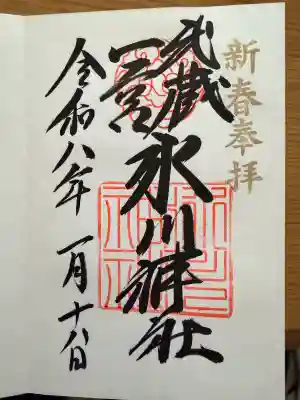 新春奉拝
武蔵
一宮
氷川神社
令和八年 一月十八日